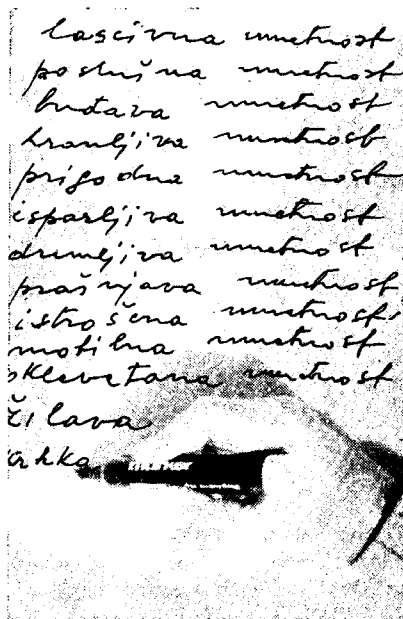 lascivna umetnost
poslušna umetnost
buđava umetnost
hranljiva umetnost
prigodna umetnost
isparljiva umetnost
dremljiva umetnost
prašnjava umetnost
istrošena umetnost
mobilna umetnost
oklevetana umetnost
žilava
krhka